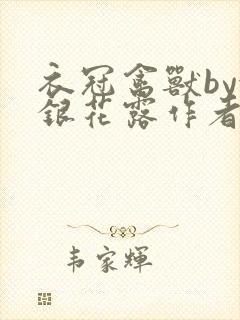 衣冠禽獸by
銀花露作者
韦家輝